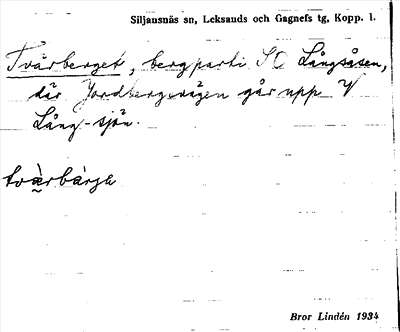 Siljansnäs sn, Leksands och Gagnefs tg, Kopp. l.
Tvärberget, bergparti SO Långsåsen,
där Jordbergsvägen går upp V
Lång-sjön.
Bror Lindén 1934